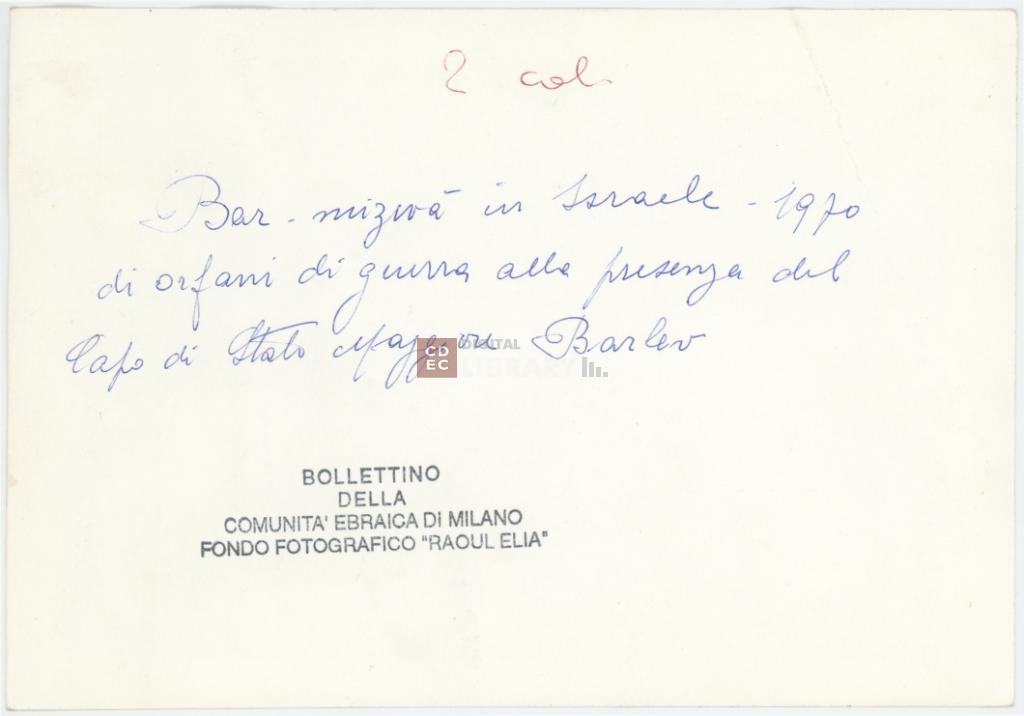 2 col.
Bar - mizwà in Israele - 1970
di orfani di guerra alla presenza del
Capo di Stato Maggiore Barlev
CD
EC
DIGITAL
LIBRARY
BOLLETTINO
DELLA
COMUNITA' EBRAICA DI MILANO
FONDO FOTOGRAFICO "RAOUL ELIA"